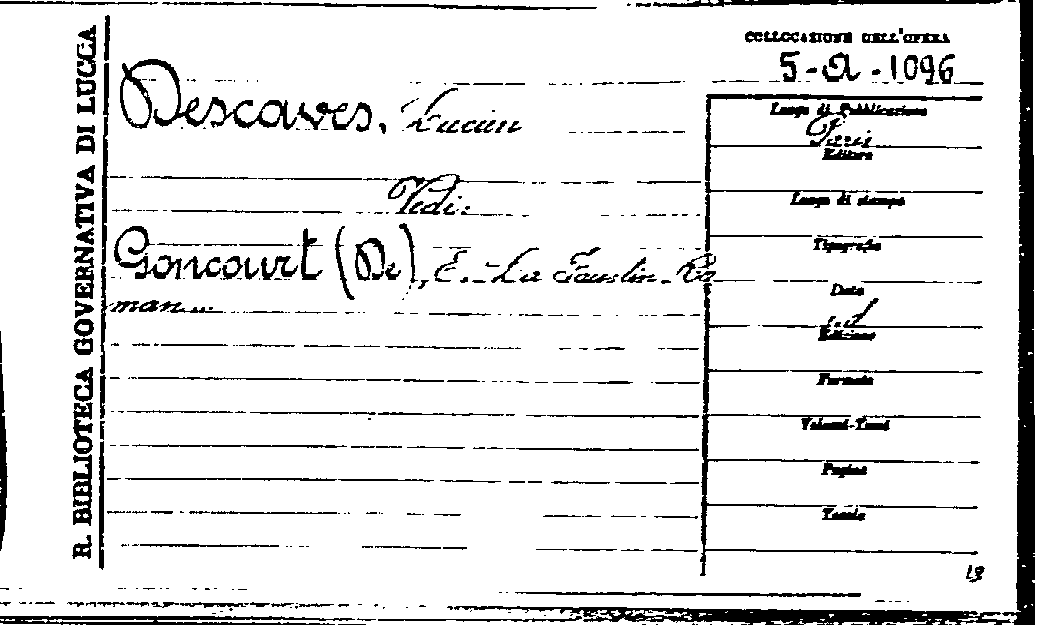 R. BIBLIOTECA GOVERNATIVA DI LUCCA
COLLOCAZIONE DELL'OPERA
5-A-1096
Descaves, Lucien
Vedi:
Goncourt (De), E. - La Faustin. Ro
man...
Luogo di Pubblicazione
Paris
Editore
Luogo di stampa
Tipografia
Data
s.d.
Edizione
Formato
Volumi-Tomi
Pagine
Tavole